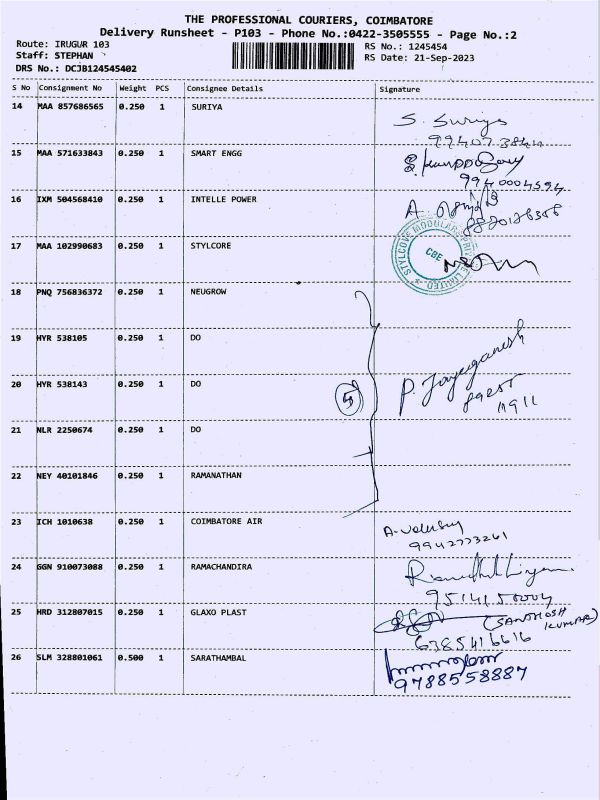 THE PROFESSIONAL COURIERS, COIMBATORE
Delivery Runsheet - P103 - Phone No.:0422-3505555 - Page No.:2
Route: IRUGUR 103
Staff: STEPHAN
DRS No.: DCJB124545402
RS No.: 1245454
RS Date: 21-Sep-2023
S No Consignment No Weight PCS Consignee Details Signature
14 MAA 857686565 0.250 1 SURIYA S. Suriya
15 MAA 571633843 0.250 1 SMART ENGG
9940004594
16 IXM 504568410 0.250 1 INTELLE POWER A.
17 MAA 102990683 0.250 1 STYLCORE
STYLCOVE MODULARS PRIVATE LIMITED
CBE
18 PNQ 756836372 0.250 1 NEUGROW
19 HYR 538105 0.250 1 DO
20 HYR 538143 0.250 1 DO 5 P. Jayaganesh
21 NLR 2250674 0.250 1 DO
22 NEY 40101846 0.250 1 RAMANATHAN
23 ICH 1010638 0.250 1 COIMBATORE AIR
9942773261
24 GGN 910073088 0.250 1 RAMACHANDIRA
25 HRD 312807015 0.250 1 GLAXO PLAST (SANTHOSH KUMAR)
6385416616
26 SLM 328801061 0.500 1 SARATHAMBAL
9788558887